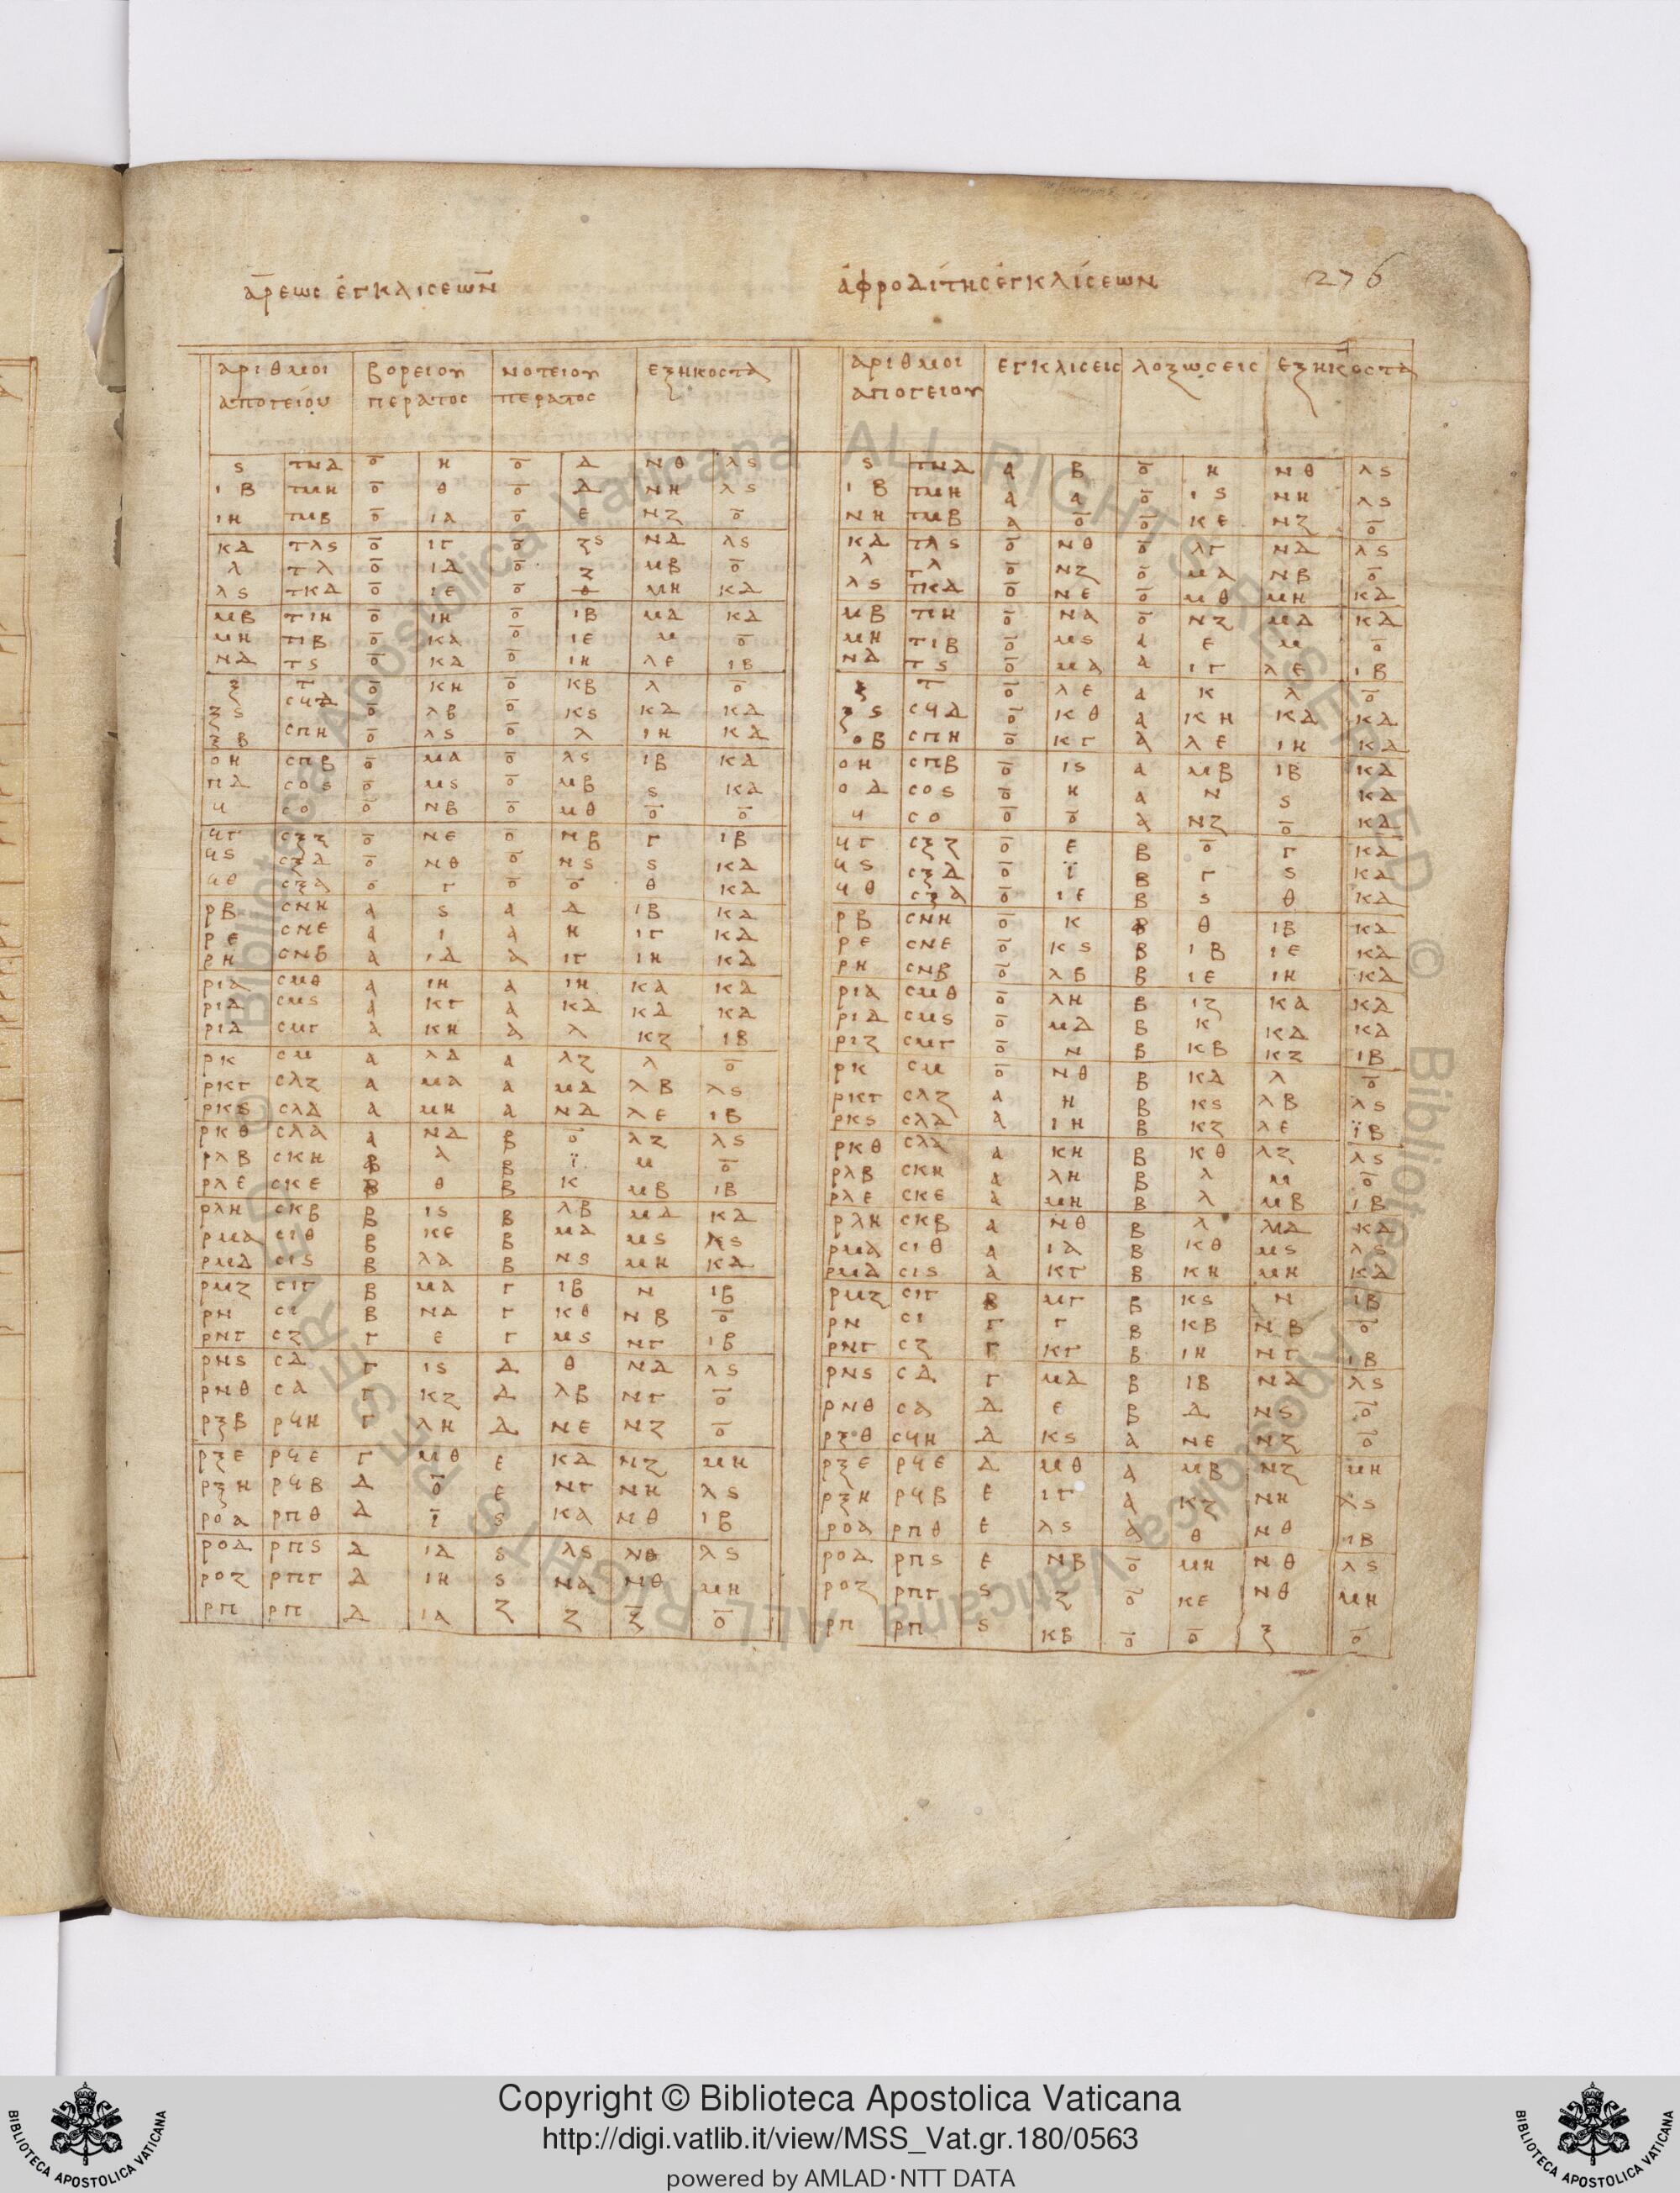 ἄρεως ἐγκλίσεων
ἀφροδίτης ἐγκλίσεων 276
αριθμοι βορειου νοτειου εξηκοστα
απογείου περατος περατος
αριθμοι εγκλισεις λοξωσεις εξηκοστα
απογειου
ϛ τνδ ο η ο δ νθ λϛ
ιβ τμη ο θ ο δ νη λϛ
ιη τμβ ο ια ο ε νζ ο
κδ τλϛ ο ιγ ο νδ λϛ
λ τλ ο ιδ ο ζ μβ ο
λϛ τκδ ο ιε ο θ μη κδ
μβ τιη ο ιη ο ιβ μδ κδ
μη τιβ ο κα ο ιε μ ο
νδ τϛ ο κα ο ιη λε ιβ
ξ τ ο κη ο κβ λ ο
ξϛ σϟδ ο λβ ο κϛ κδ κδ
ξβ σπη ο λϛ ο λ ιη κδ
οη σπβ ο μα ο λϛ ιβ κδ
πδ σοϛ ο μϛ ο μβ ϛ κδ
ϟ σο ο νβ ο μθ ο ο
ϟγ σξζ ο νε ο νβ γ ιβ
ϟϛ σξδ ο νθ ο νϛ ϛ κδ
ϟθ σξα ο γ ο ο θ κδ
ρβ σνη α ϛ α δ ιβ κδ
ρε σνε α ι α η ιγ κδ
ρη σνβ α ιδ α ιγ ιη κδ
ρια σμθ α ιη α ιη κα κδ
ριδ σμϛ α κγ α κδ κδ κδ
ριδ σμγ α κη α λ κζ ιβ
ρκ σμ α λδ α λζ λ ο
ρκγ σλζ α μα α μδ λβ λϛ
ρκϛ σλδ α μη α νδ λε ιβ
ρκθ σλα α νδ β ο λζ λϛ
ρλβ σκη β α β ϊ μ ο
ρλε σκε β θ β κ μβ ιβ
ρλη σκβ β ιϛ β λβ μδ κδ
ρμα σιθ β κε β μα μϛ λϛ
ρμδ σιϛ β λα β νϛ μη κδ
ρμζ σιγ β μα γ ιβ ν ιβ
ρν σι β νδ γ κθ νβ ο
ρνγ σζ γ ε γ μϛ νγ ιβ
ρνϛ σδ γ ιϛ δ θ νδ λϛ
ρνθ σα γ κζ δ λβ νγ ο
ρξβ ρϟη γ λη δ νε νζ ο
ρξε ρϟε γ μθ ε κδ νζ μη
ρξη ρϟβ δ ο ε νγ νη λϛ
ροα ρπθ δ ι ϛ κα νθ ιβ
ροδ ρπϛ δ ιδ ϛ λϛ νθ λϛ
ροζ ρπγ δ ιη ϛ να νθ μη
ρπ ρπ δ ια ζ ζ ξ ο
ϛ τνδ α β ο η νθ λϛ
ιβ τμη α α ο ιϛ νη λϛ
νη τμβ α ο ο κε νζ ο
κδ τλϛ ο νθ ο λγ νδ λϛ
λ τλ ο νζ ο μα νβ ο
λϛ τκδ ο νε ο μθ μη κδ
μβ τιη ο να ο νζ μδ κδ
μη τιβ ο μϛ α ε μ ο
νδ τϛ ο μα α ιγ λε ιβ
ξ τ ο λε α κ λ ο
ξϛ σϟδ ο κθ α κη κδ κδ
οβ σπη ο κγ α λε ιη κδ
οη σπβ ο ιϛ α μβ ιβ κδ
οδ σοϛ ο η α ν ϛ κδ
ϟ σο ο ο α νζ ο κδ
ϟγ σξζ ο ε β ο γ κδ
ϟϛ σξδ ο ϊ β γ ϛ κδ
ϟθ σξα ο ιε β ϛ θ κδ
ρβ σνη ο κ β θ ιβ κδ
ρε σνε ο κϛ β ιβ ιε κδ
ρη σνβ ο λβ β ιε ιη κδ
ρια σμθ ο λη β ιζ κα κδ
ριδ σμϛ ο μδ β κ κδ κδ
ριζ σμγ ο ν β κβ κζ ιβ
ρκ σμ ο νθ β κδ λ ο
ρκγ σλζ α η β κϛ λβ λϛ
ρκϛ σλδ α ιη β κζ λε ϊβ
ρκθ σλα α κη β κθ λζ λϛ
ρλβ σκη α λη β λ μ ο
ρλε σκε α μη β λ μβ ιβ
ρλη σκβ α νθ β λ μδ κδ
ρμα σιθ α ια β κθ μϛ λϛ
ρμδ σιϛ α κγ β κη μη κδ
ρμζ σιγ β μγ β κϛ ν ιβ
ρν σι γ γ β κβ νβ ο
ρνγ σζ γ κγ β ιη νγ ιβ
ρνϛ σδ γ μδ β ιβ νδ λϛ
ρνθ σα δ ε β δ νϛ ο
ρξθ σϟη δ κϛ α νε νζ ο
ρξε ρϟε δ μθ α μβ νζ μη
ρξη ρϟβ ε ιγ α κζ νη λϛ
ροα ρπθ ε λϛ α θ νθ ιβ
ροδ ρπϛ ε νβ ο μη νθ λϛ
ροζ ρπγ ϛ ζ ο κε νθ μη
ρπ ρπ ϛ κβ ο ο ξ ο
Copyright © Biblioteca Apostolica Vaticana
http://digi.vatlib.it/view/MSS_Vat.gr.180/0563
powered by AMLAD・NTT DATA
BIBLIOTECA APOSTOLICA VATICANA
BIBLIOTECA APOSTOLICA VATICANA